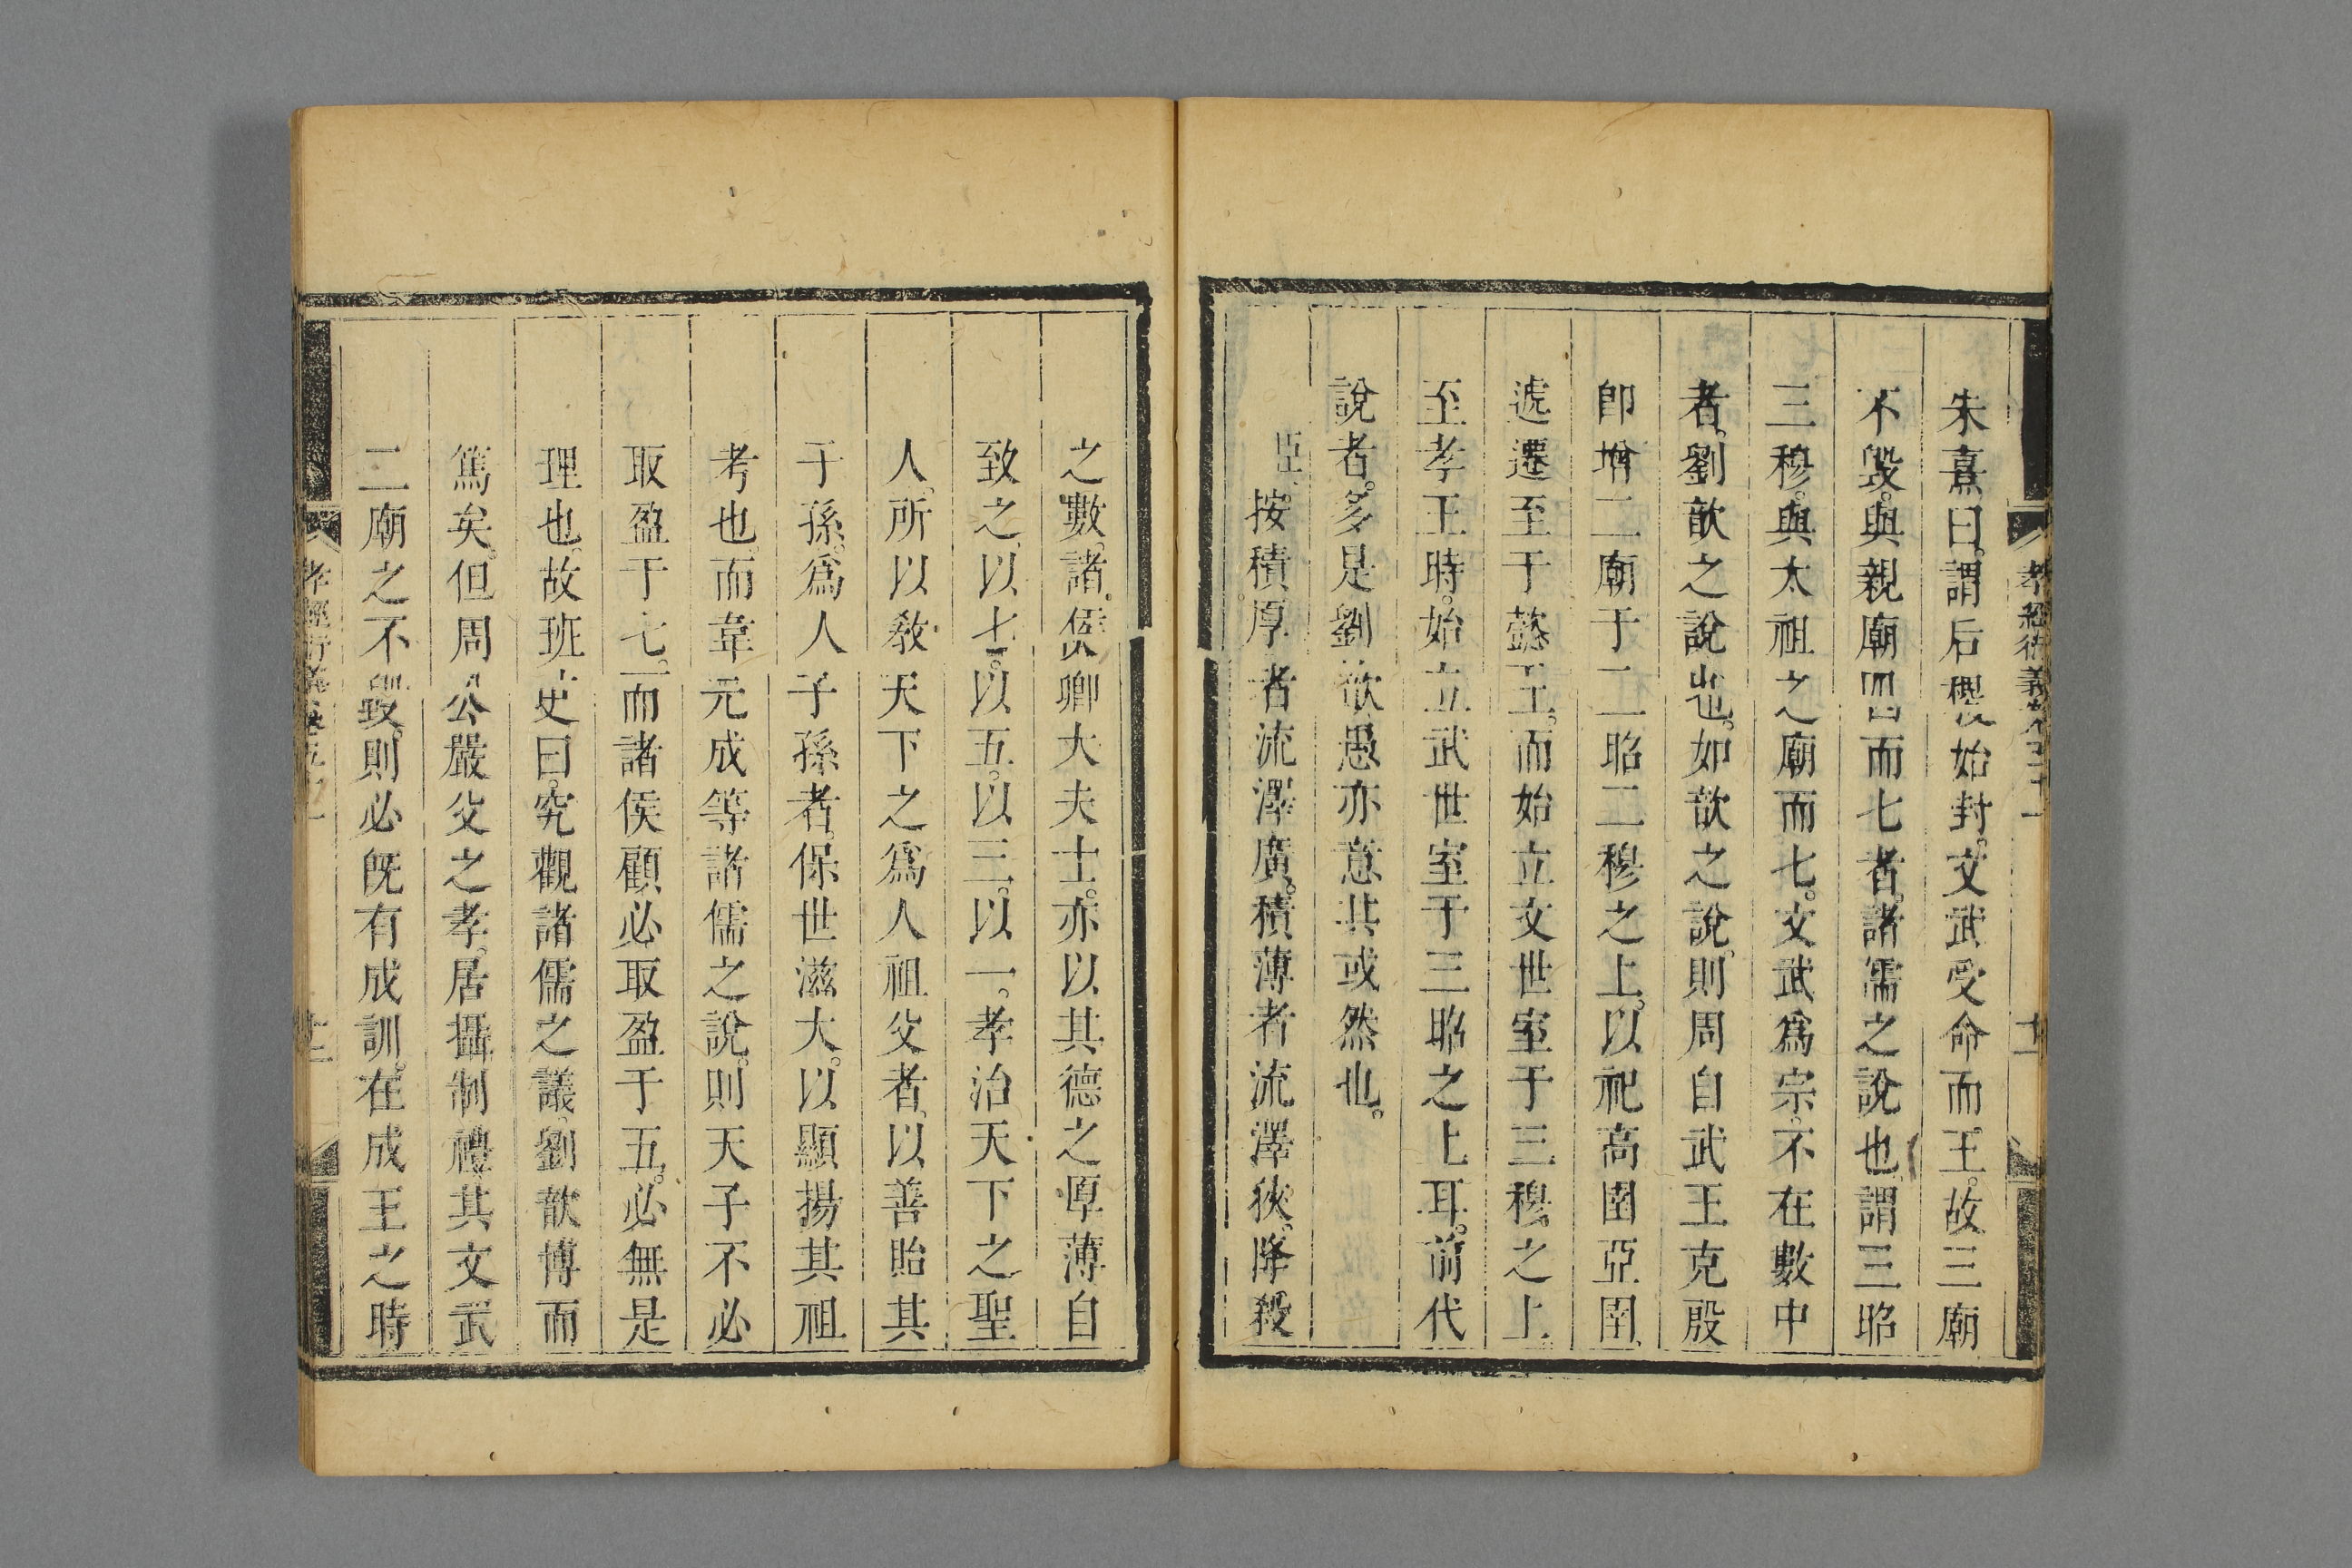 朱熹曰。謂后稷始封。文武受命而王。故三廟
不毀。與親廟四而七者。諸儒之說也。謂三昭
三穆。與太祖之廟而七。文武爲宗。不在數中
者。劉歆之說也。如歆之說。則周自武王克殷
卽增二廟于二昭二穆之上。以祀高圉亞圉、
遞遷至于懿王。而始立文世室于三穆之上。
至孝王時。始立武世室于三昭之上耳。前代
說者。多是劉歆。愚亦意其或然也。
臣按。積厚者流澤廣。積薄者流澤狹。降殺
之數。諸侯卿大夫士。亦以其德之厚薄自
致之、以七。以五。以三。以一。孝治天下之聖
人。所以敎天下之爲人祖父者、以善貽其
子孫。爲人子孫者。保世滋大。以顯揚其祖
考也。而韋元成等諸儒之說。則天子不必
取盈于七。而諸侯顧必取盈于五。必無是
理也。故班史曰。究觀諸儒之議。劉歆博而
篤矣。但周公嚴父之孝。居攝制禮。其文武
二廟之不毀。則必旣有成訓。在成王之時
孝經衍義卷
十二